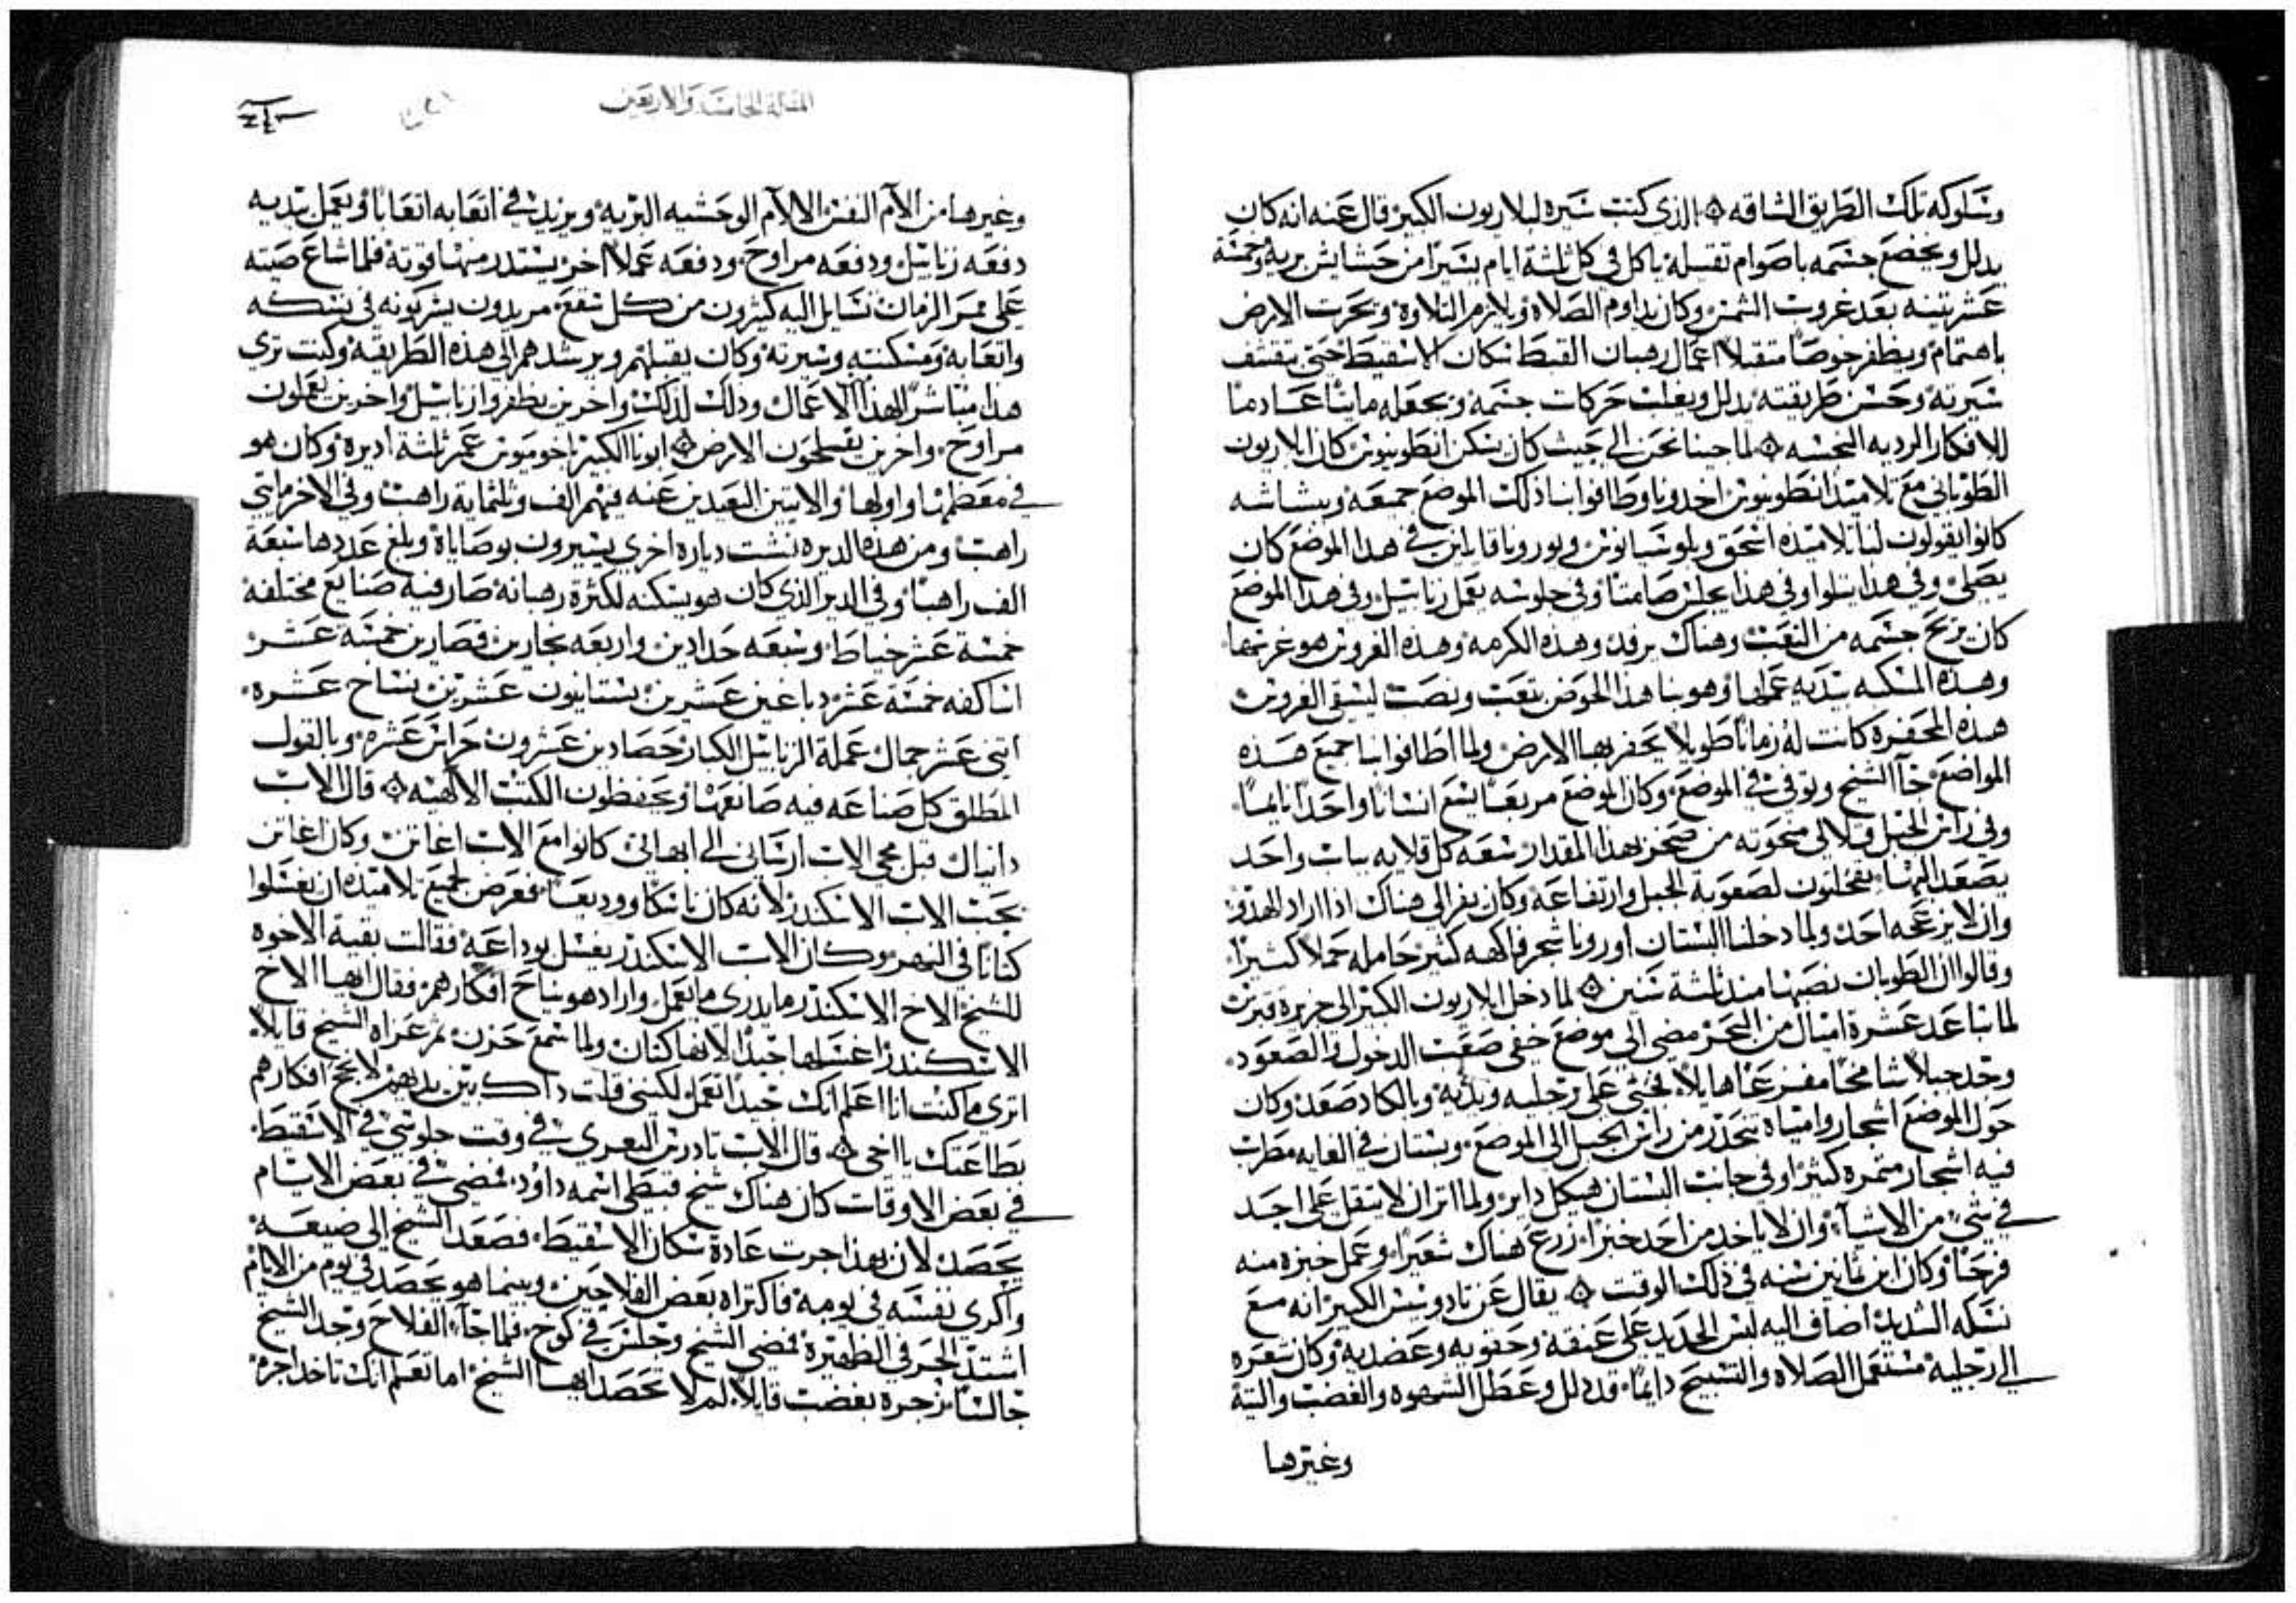 وسلوكه تلك الطريق الشاقه ۞ الذي كتب سيره لايلاريون الكبير قال عنه انه كان
يدلل ويخضع جسمه باصوام تقيله ياكل في كل ثلثة ايام يسيرا من حشايش بريه وخمسة
عشر تينه بعد غروب الشمس وكان يداوم الصلاه ويلازم التلاوه ويحرت الارض
باهتمام ويظفر خوصا متقبلا اعمال رهبان القبط سكان الاسقيط حتي بتقشف
سيرته وحسن طريقته يدلل ويغلب حركات جسمه ويجعله مايتا عادما
للافكار الرديه النجسه ۞ لما جينا نحن الي حيث كان يسكن انطونيوس كان ايلاريون
الطوباني مع تلاميد انطونيوس اخدونا وطافوا بنا ذلك الموضع جميعه وببشاشه
كانوا يقولون لنا تلاميده اسحق وبلوسيانوس ويورونا قايلين في هدا الموضع كان
يصلي وفي هذا يتلوا وفي هذا يجلس صامتا وفي جلوسه يعمل زنابيل وفي هدا الموضع
كان يريح جسمه من التعب وهناك يرقد وهذه الكرمه وهذه الغروس هو غرسها
وهذه المسكبه بيديه عملها وهو بنا هذا الحوض بتعب ونصب ليسقي الغروس
هذه المحفره كانت له زمانا طويلا يحفر بها الارض ولما اطافوا بنا جميع هذه
المواضع جآ الشيخ وتوفي في الموضع وكان الموضع مربعا يسع انسانا واحدا نايما
وفي راس الجبل قلالي منحوته من صخر بهدا المقدار سعه كل قلايه بباب واحد
يصعد اليها لصعوبة الجبل وارتفاعه وكان يفر الي هناك ادا اراد الهدو
وان لا يزعجه احد ولما دخلنا البستان اورونا شجر فاكهه كثير حامله حملا كثيرا
وقالوا ان الطوبان نصبها مند ثلثة سنين ۞ لما دخل ايلاريون الكبير الي جزيرة قبرس
لما تباعد عشرة اميال من البحر مضي الي موضع خفي صعب الدخول والصعود
وجد جبلا شامخا مفزعا هايلا فحثي علي رجليه ويديه وبالكاد صعد وكان
حول الموضع اشجار وامياه تتحدر من راس الجبل الي الموضع وبستان في الغايه مطرب
فيه اشجار متمره كثيرا وفي جانب البستان هيكل داير ولما اتر ان لا يتقل علي احد
في شي من الاشيآ وان لا ياخد من احد خبزا زرع هناك شعيرا وعمل خبزه منه
فرحا وكان ابن ثمانين سنه في ذلك الوقت ۞ يقال عن تادوسيس الكبير انه مع
نسكه الشديد اضاف اليه لبس الحديد علي عنقه وحقويه وعضديه وكان شعره
الي رجليه مستعمل الصلاه والتسبيح دايما قد دلل وعطل الشهوه والغضب والتيه
وغيرها
المقالة الخامسة والاربعين
وغيرها من الآم النفس الالآم الوحشيه البريه ويزيد في اتعابه اتعابا ويعمل بيديه
دفعه زنابيل ودفعه مراوح ودفعه عملا اخر يستدر منها قوته فلما شاع صيته
علي ممر الزمان تسايل اليه كثيرون من كل سقع مريدون يشركونه في نسكه
واتعابه ومسكنته وسيرته وكان يقبلهم ويرشدهم الي هذه الطريقه وكنت تري
هدا مباشرا لهذا الاعمال ودلك لذلك واخرين يظفروا زنابيل واخرين يعملون
مراوح واخرين يفلحون الارض ۞ ابونا الكبير باخوميوس عمر ثلثة اديره وكان هو
في معظمها واولها والاتنين البعيدين عنه فيهم الف وثلثماية راهب وفي الاخر مايتي
راهب ومن هده الديره نشت دياره اخري يسيرون بوصاياه وبلغ عددها سبعة
الف راهبا وفي الدير الذي كان هو يسكنه لكثرة رهبانه صار فيه صنايع مختلفه
خمسة عشر خياط وسبعه حدادين واربعه نجارين قصارين خمسة عشر
اساكفه خمسة عشر دباغين عشرين بستانيون عشرين نساح عشره
اتني عشر جمال عملة الزنابيل الكبار حصادين عشرون حراس عشره وبالقول
المطلق كل صناعه فيه صانعها ويحفظون الكتب الالهيه ۞ قال الاب
دانيال قبل مجي الاب ارساني الي ابهاتي كانوا مع الاب اغاتن وكان اغاتن
يحب الاب الاسكندر لانه كان ناسكا ووديعا فعرض لجميع تلاميده ان يغسلوا
كتانا في النهر وكان الاب الاسكندر يغسل بوداعه فقالت بقية الاخوه
للشيخ الاخ الاسكندر ما يدري ما يعمل واراد هو نياح افكارهم فقال ايها الاخ
الاسكندر اغسلها جيدا لانها كتان ولما سمع حزن ثم عزاه الشيخ قايلا
اتري ما كنت انا اعلم انك جيدا تعمل لكنني قلت داك بين يديهم لانجح افكارهم
بطاعتك يا اخي ۞ قال الاب تادرس البعري في وقت جلوسي في الاسقيط
في بعض الاوقات كان هناك شيخ قبطي اسمه داود فمضي في بعض الايام
يحصد لان بهذا جرت عادة سكان الاسقيط فصعد الشيخ الي ضيعه
واكري نفسه في يومه فاكتراه بعض الفلاحين وبينما هو يحصد في يوم من الايام
اشتد الحر في الظهيرة فمضي الشيخ وجلس في كوخ فلما جآ الفلاح وجد الشيخ
جالسا زجره بغضب قايلا لم لا تحصد ايها الشيخ اما تعلم انك تاخد اجره